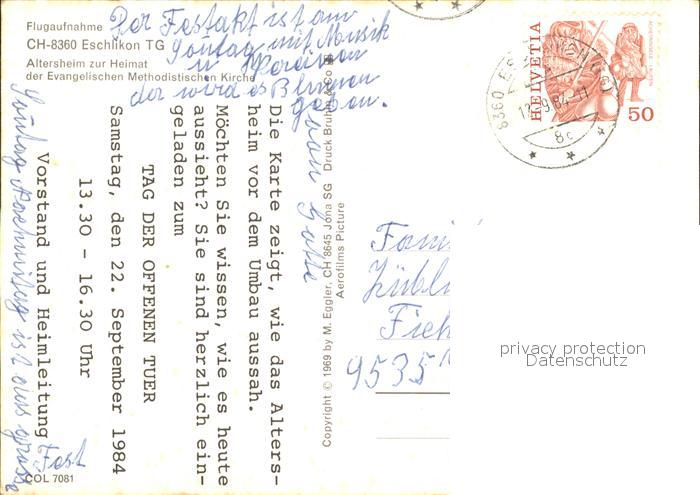 Flugaufnahme
CH-8360 Eschlikon TG
Altersheim zur Heimat
der Evangelischen Methodistischen Kirche
Der Festakt ist am
Sonntag mit Musik
u.
der wird es Blumen
geben.
Die Karte zeigt, wie das Alters-
heim vor dem Umbau aussah.
Möchten Sie wissen, wie es heute
aussieht? Sie sind herzlich ein-
geladen zum
TAG DER OFFENEN TUER
Samstag, den 22. September 1984
13.30 - 16.30 Uhr
Vorstand und Heimleitung
Sontag Nachmittag ist das grosse
Fest
COL 7081
Copyright © 1969 by M. Eggler, CH 8645 Jona SG Druck Bruhin
Aerofilms Picture
HELVETIA
50
8360
8c
Fami
Zübli
Fich
9535
privacy protection
Datenschutz